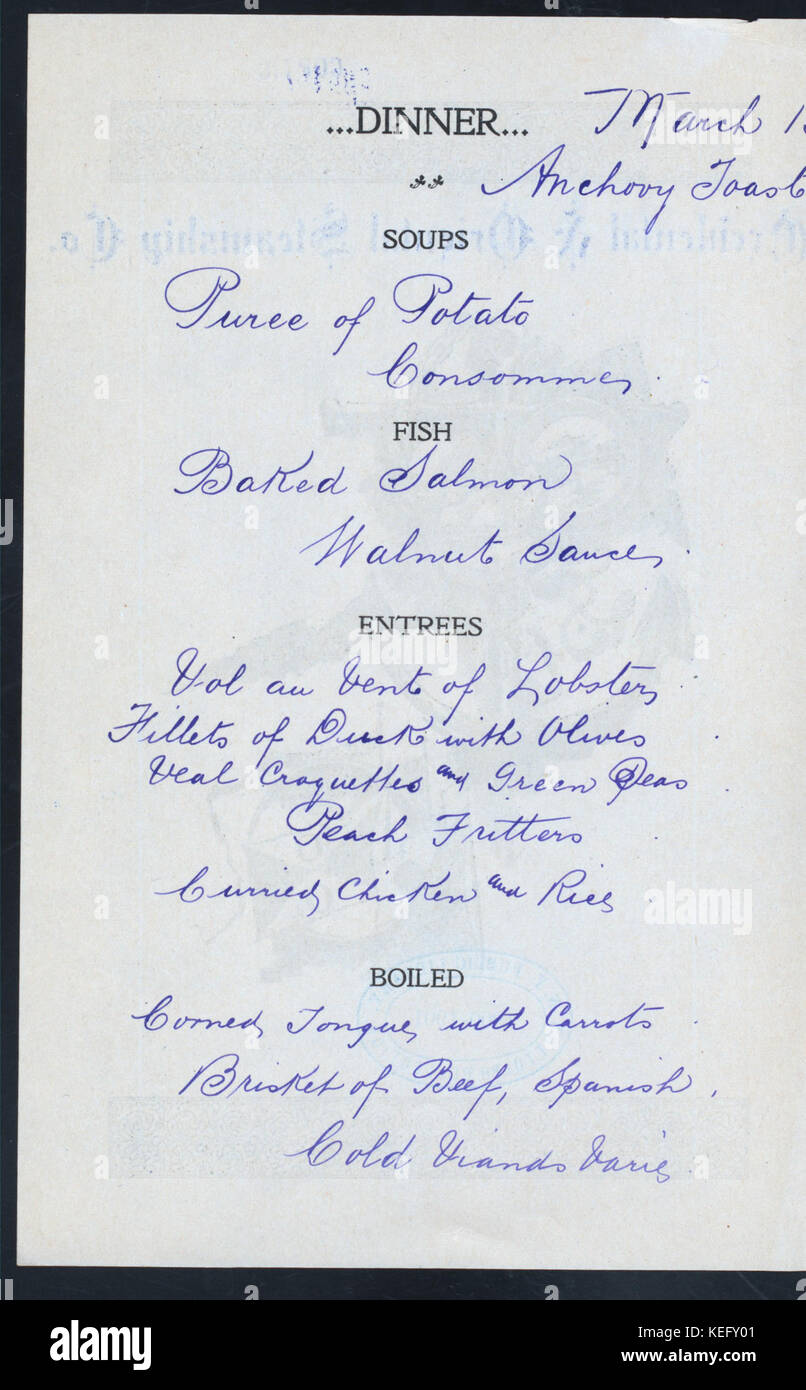 ...DINNER... March 1
Anchovy Toast
Occidential & Oriental Steamship Co.
SOUPS
Puree of Potato
Consomme
FISH
Baked Salmon
Walnut Sauce
ENTREES
Vol au Vent of Lobster
Fillets of Duck with Olives
Veal Croquettes and Green Peas
Peach Fritters
Curried Chicken and Rice
BOILED
Corned Tongue with Carrots
Brisket of Beef, Spanish.
Cold Viands Varie
alamy
Image ID: KEFY01
www.alamy.com